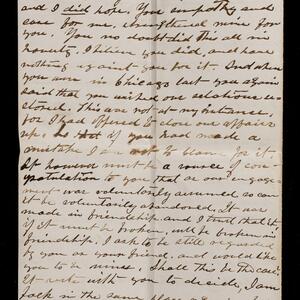 and I did hope. Your sympathy and
care for me, strengthened mine for
you. You no doubt did this all in
honesty, I believe you did, and have
nothing against you for it. And when
you were in Chicago last you again
said that you wished our relations
closed. This was not at my instance,
for I had offered to close our affairs
up. if you had made a
mistake I am not to blame for it.
It however must be a
to you that as our engage
ment was voluntarily assumed so can
it be voluntarily abandoned. It was
made in friendship and I trust that if
it must be broken, will be broken in
friendship. I ask to be still regarded
by you as your friend, and would like
you to be mine. Shall this be the case?
It rests with you to decide, I am
back in the same place